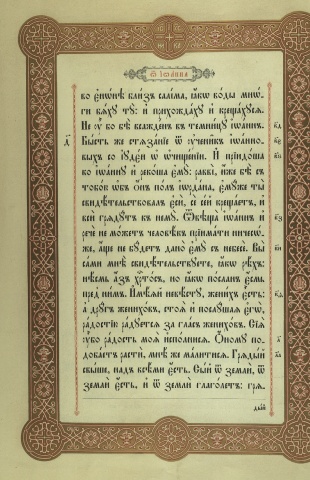 Ѿ Іѡанна
во єнѡнѣ близъ салима, ꙗкѡ воды мнѡ-
ги бѧхꙋ тꙋ: и прихождахꙋ и крещахꙋсѧ.
Не ᲂу҆ бо бѣ всажденъ въ темницꙋ іѡаннъ.
Бысть же стѧзаніе ѿ оученикъ іѡанно-
выхъ со іꙋдеи ѡ ѡчищеніи. И пріидоша
ко іѡаннꙋ и рекоша ємꙋ: равви, иже бѣ съ
тобою ѡбъ онъ полъ іѻрдана, ємꙋже ты
свидѣтельствовалъ єси, се сей крещаетъ, и
вси грѧдꙋтъ къ немꙋ. Ѿвѣща іѡаннъ и
рече не можетъ человѣкъ пріимати ничесѡ-
же, аще не бꙋдетъ дано ємꙋ съ небесе. Вы
сами мнѣ свидѣтельствꙋете, ꙗкѡ рѣхъ:
нѣсмь азъ хртосъ, но ꙗкѡ посланъ єсмь
пред нимъ. Имѣѧй невѣстꙋ, женихъ єсть:
а дрꙋгъ жениховъ, стоѧ и послꙋшаѧ єгѡ,
радостію радꙋетсѧ за гласъ жениховъ. Сіѧ
ᲂубо радость моѧ исполнисѧ. Ономꙋ по-
добаетъ расти, мнѣ же малитисѧ. Грѧдый
свыше, надъ всѣми єсть. Сый ѿ земли, ѿ
земли єсть, и ѿ земли глаголетъ: грѧ-
дый